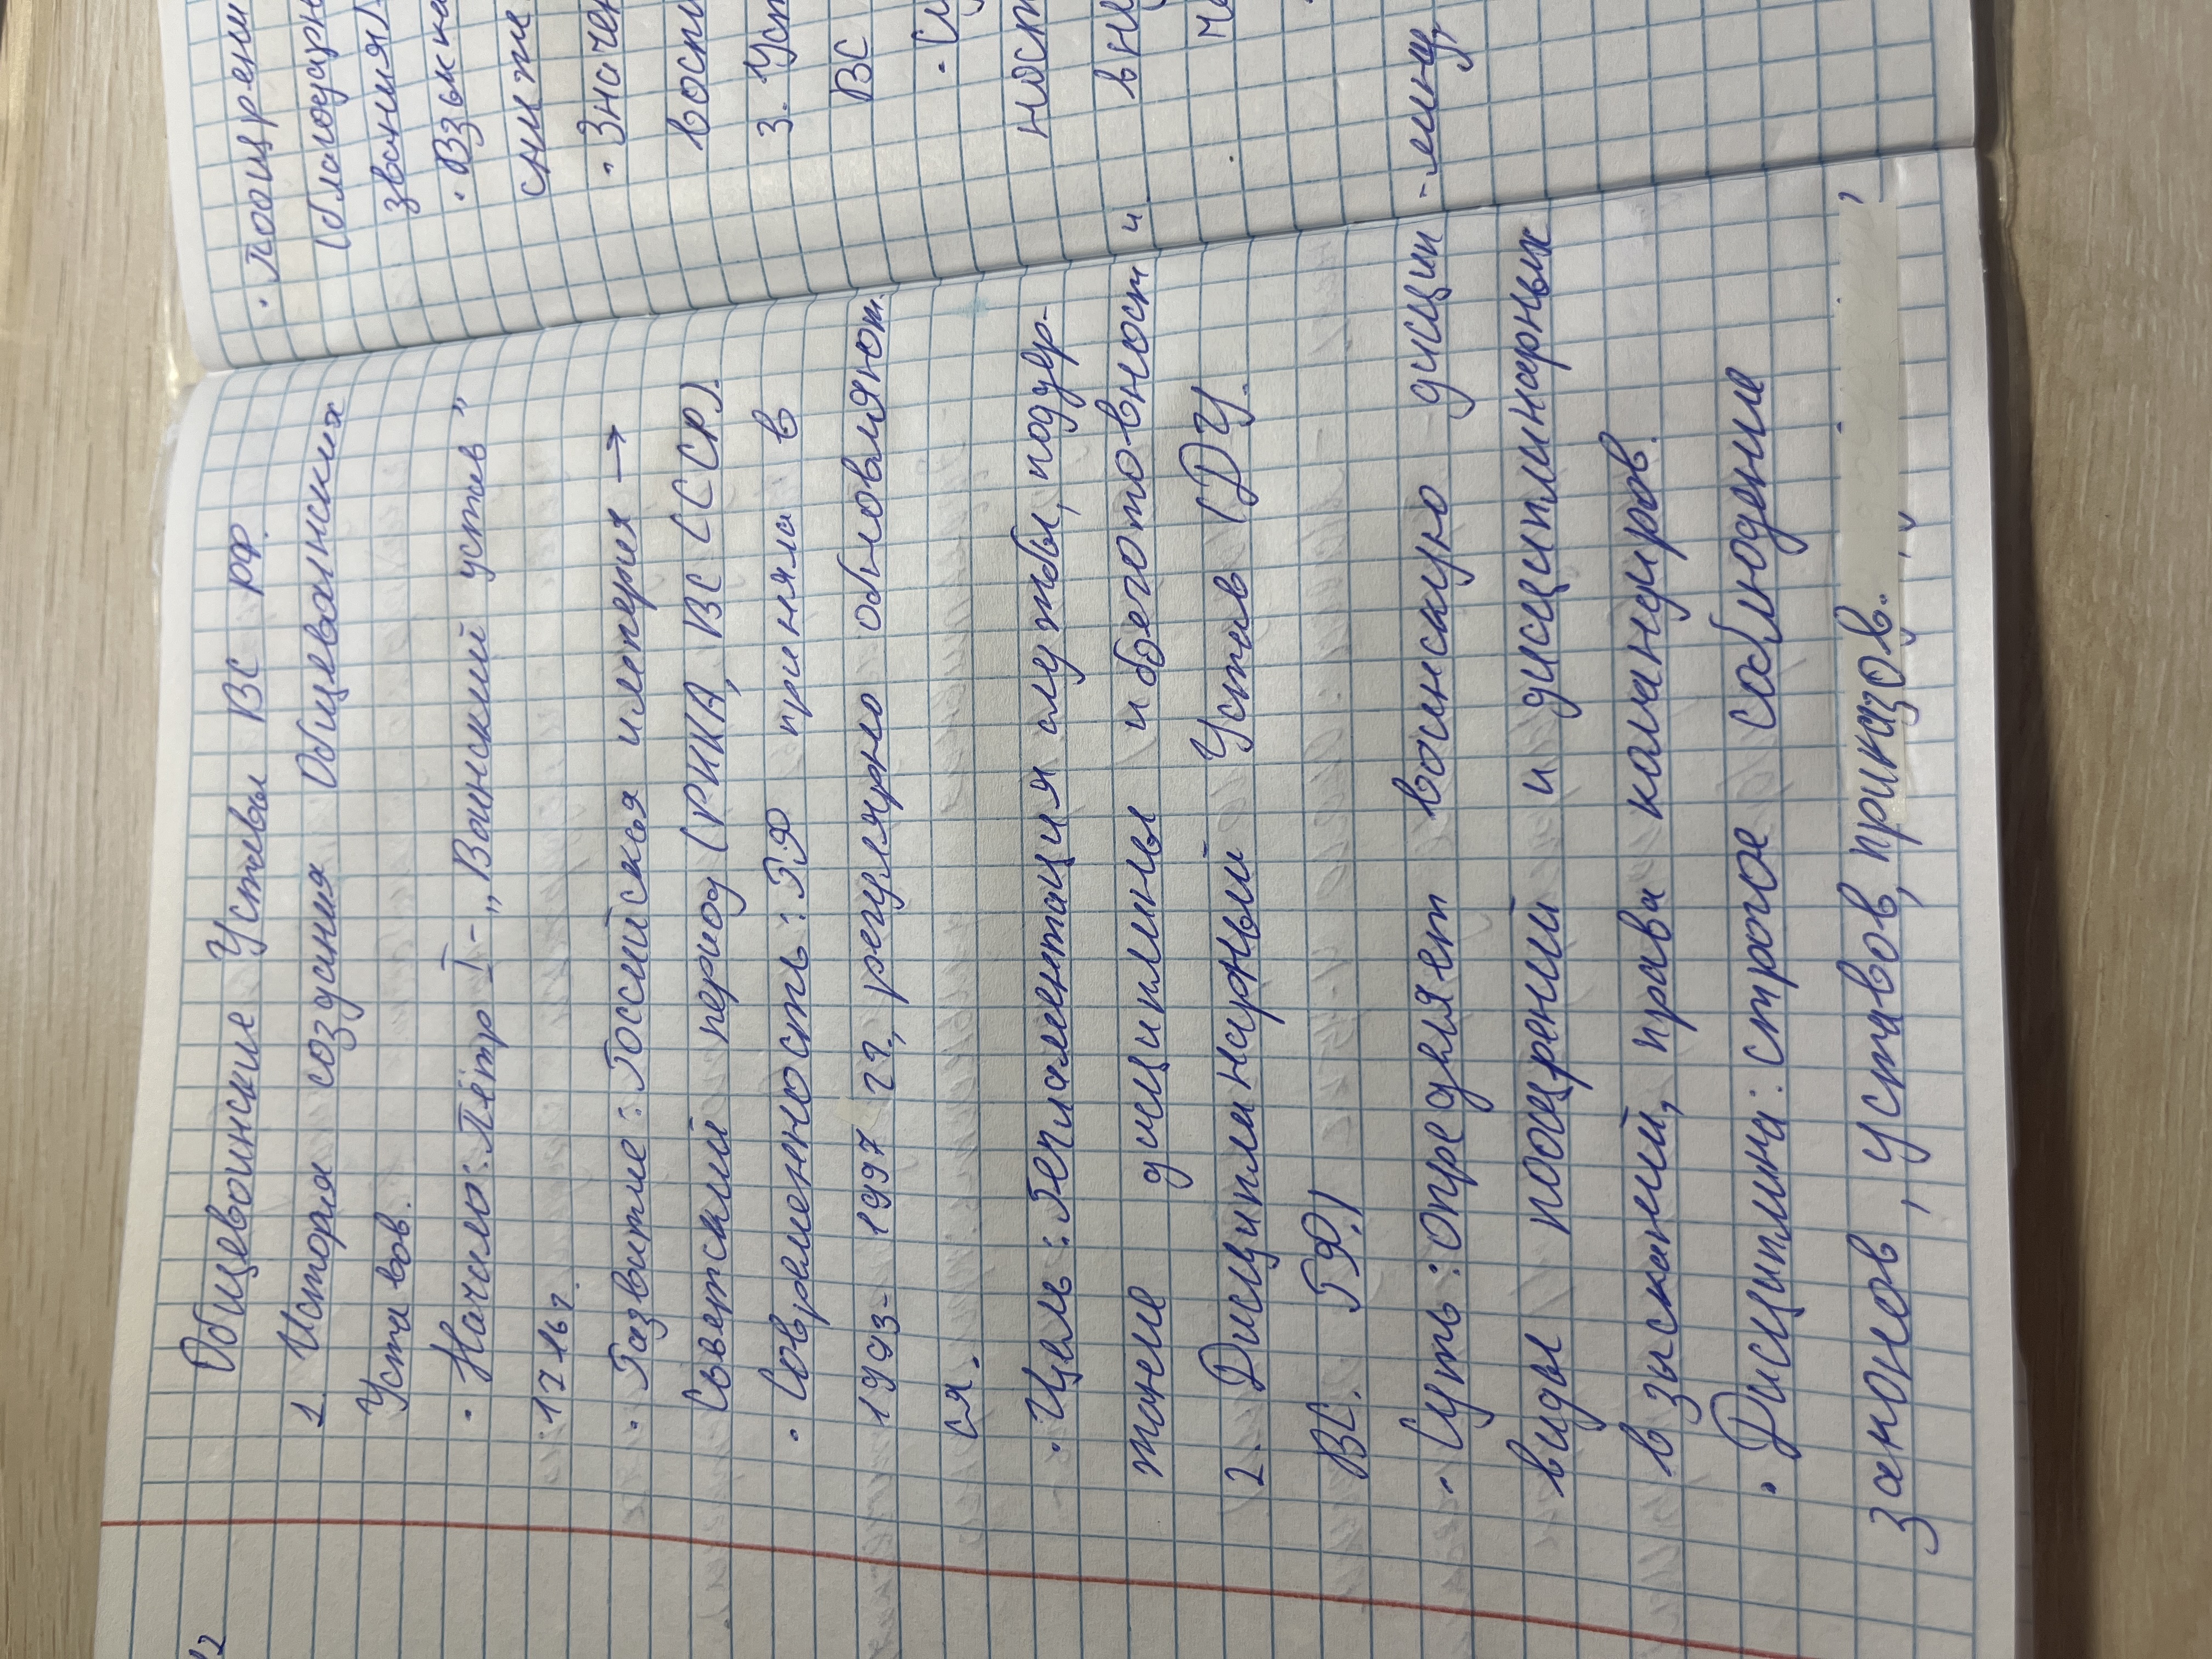 12
Общевоинские Уставы ВС РФ.
1. История создания Общевоинских
Уставов.
· Начало: Пётр I - „Воинский устав"
1716г.
· Развитие: Российская империя →
Советский период (РККА, ВС СССР).
· Современность: РФ приняла в
1993-1997 гг., регулярно обновляют.
ся.
· Цель: Регламентация службы, поддер-
жание дисциплины и боеготовности
2. Дисциплинарный Устав (ДУ.
ВС. РФ.)
· Суть: определяет воинскую дисцип-лину,
виды поощрений и дисциплинарных
взысканий, права командиров.
· Дисциплина: строгое соблюдение
законов, уставов, приказов.
· Поощрени
(благодарн
звания).
· Взыскан
сниже
· Значен
воспи
3. Уст
ВС
ност
в ну